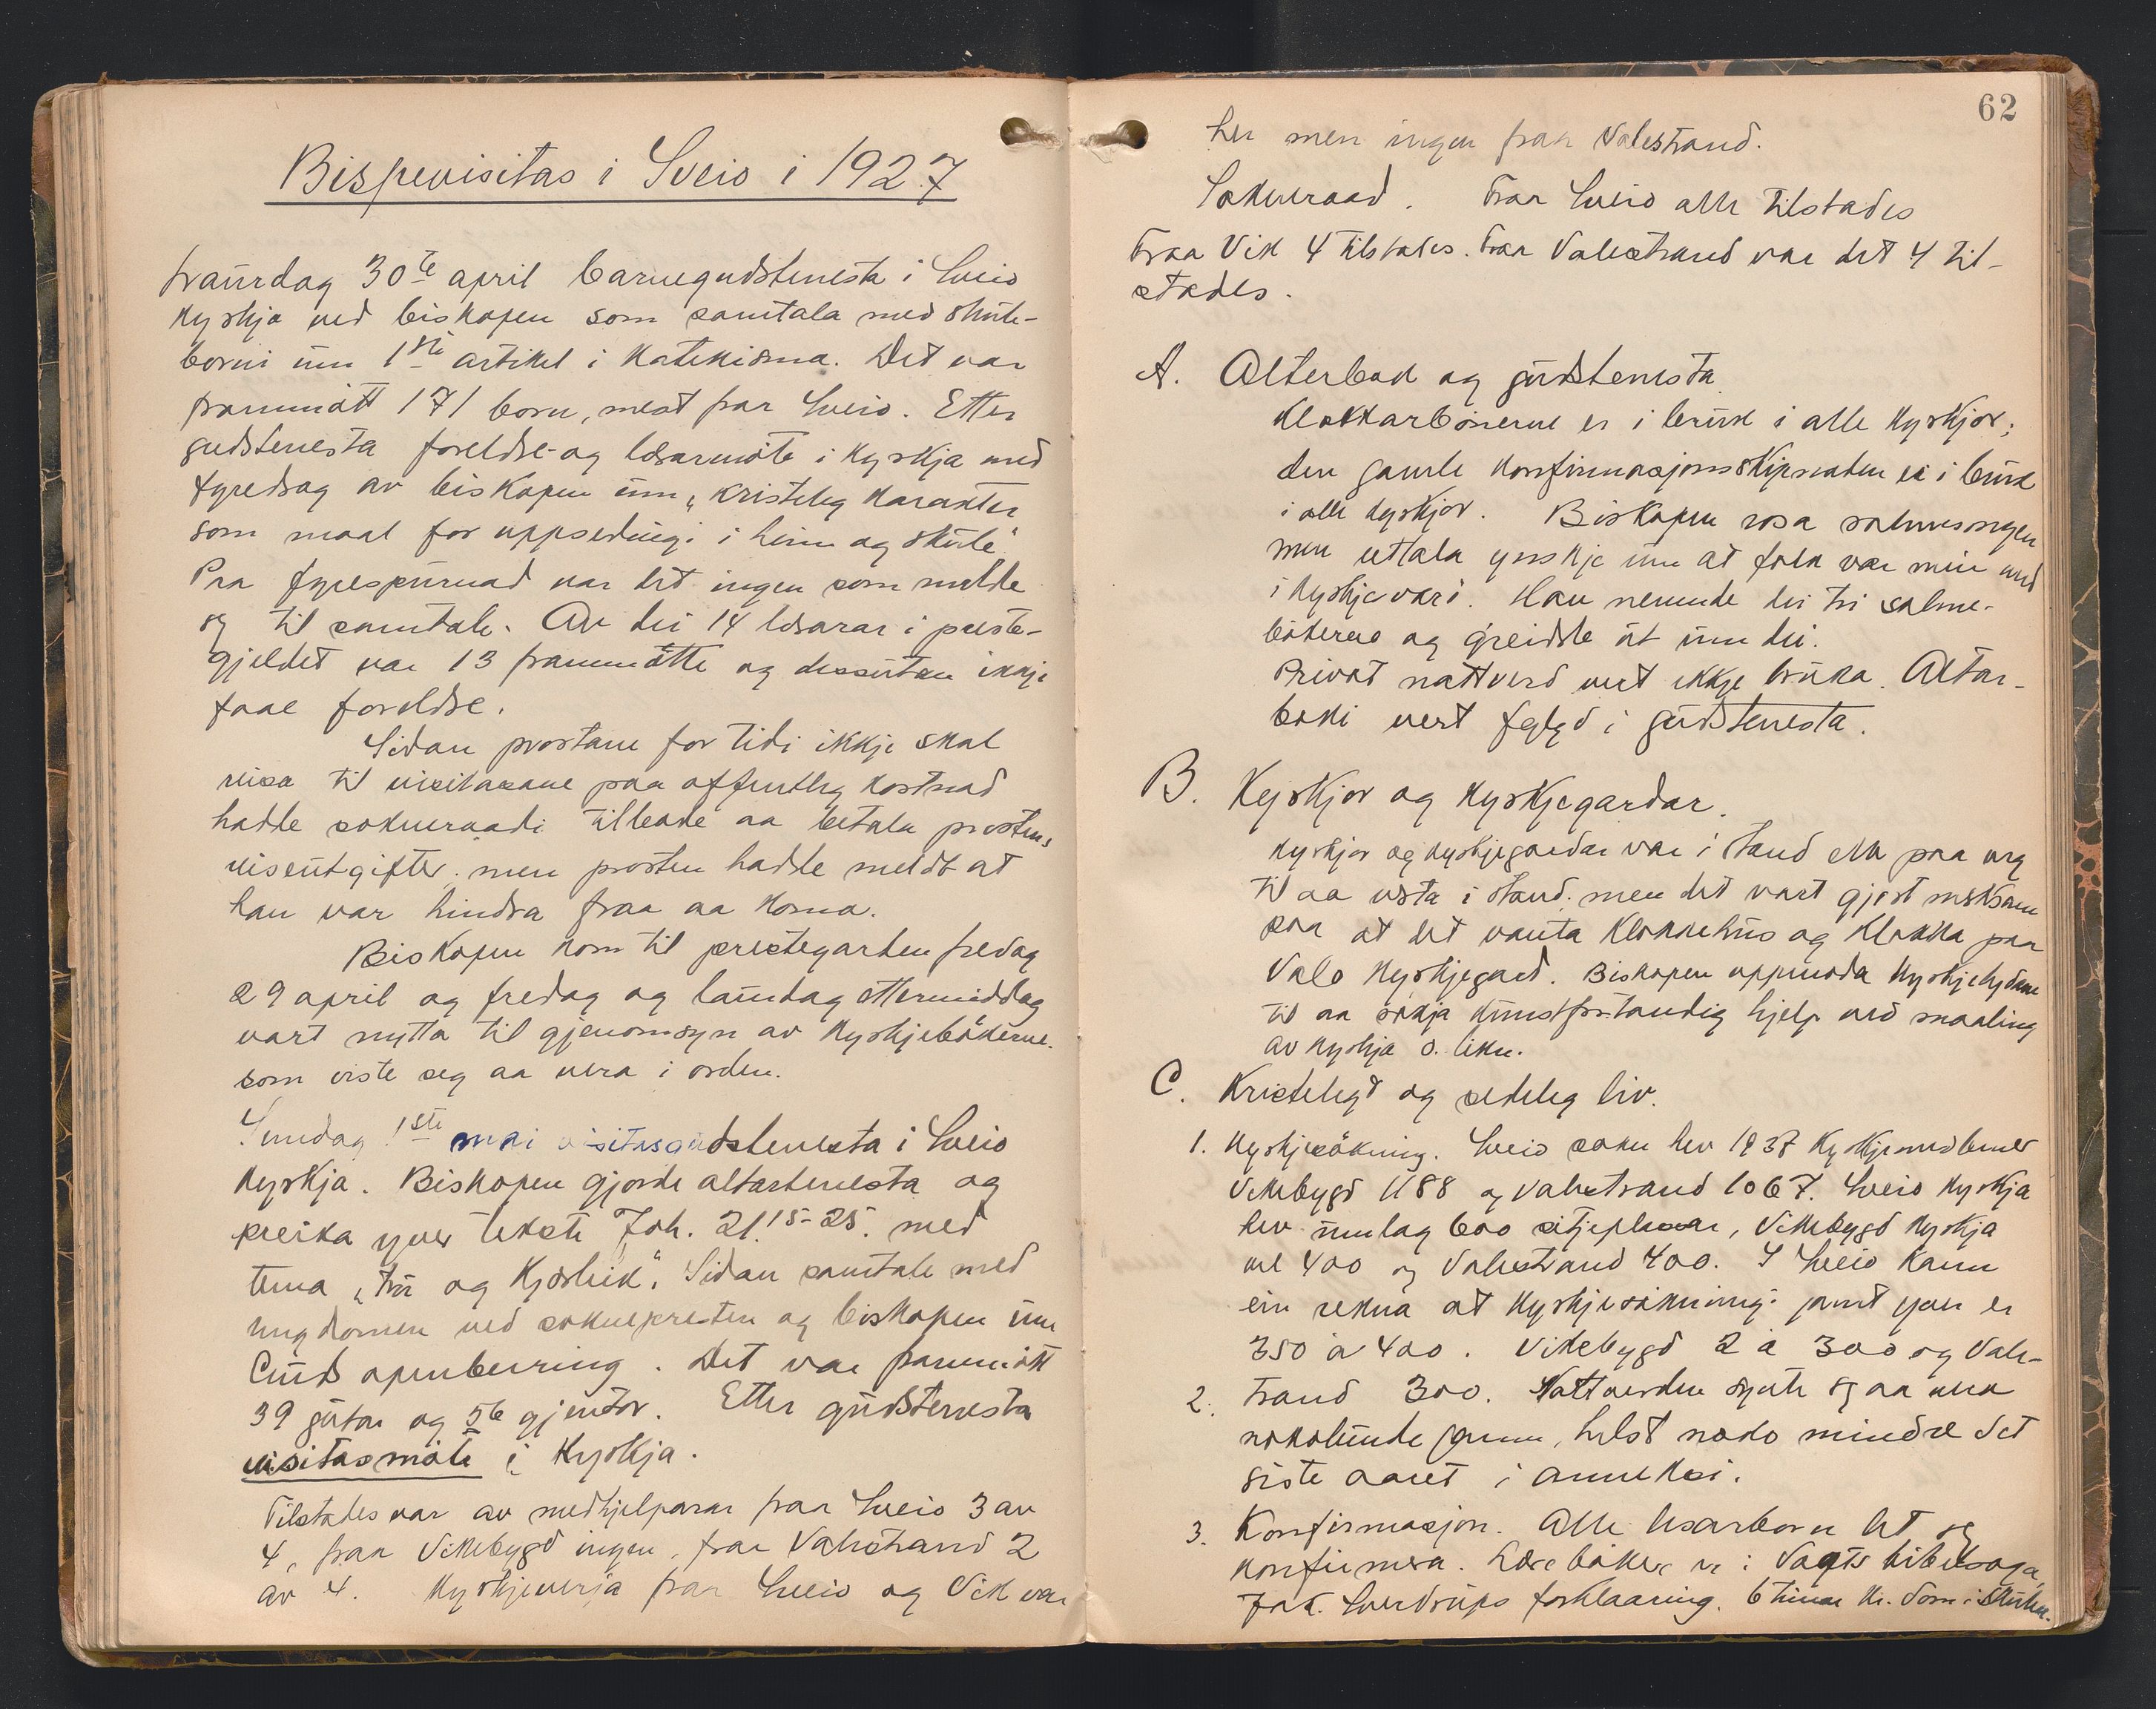 Bispevisitas i Sveio i 1927
Laurdag 30te april barnegudstenesta i Sveio
kyrkja ved biskopen som samtala med skule-
borni um 1ste artikel i katekisma. Det var
frammött 171 born, mest fraa Sveio. Etter
gudstenesta foreldre- og lærarmöte i kyrkja med
fyredrag av biskopen um „Kristeleg karakter
som maal for uppsedingi i heim og skule".
Paa fyrespurnad var det ingen som melde
seg til samtale. Av dei 14 lærarar i preste-
gjeldet var 13 frammötte og dessutan ikkje
faae foreldre.
Sidan prostane for tidi ikkje skal
reisa til visitasane paa offentleg kostnad
hadde sokneraadi tilbode aa betala prostens
reiseutgifter, men prosten hadde meldt at
han var hindra fraa aa koma.
Biskopen kom til prestegarden fredag
29 april og fredag og laurdag ettermiddag
vart nytta til gjenomsyn av kyrkjebökerne.
som viste seg aa vera i orden.
Sundag 1ste mai visitasgudstenesta i Sveio
kyrkja. Biskopen gjorde altartenesta og
preika yver teksti Joh. 21.15-25. med
tema „tru og kjærleik". Sidan samtale med
ungdomen ved soknepresten og biskopen um
Guds openberring. Det var frammött
39 gutar og 56 gjentor. Etter gudstenesta
visitasmöte i kyrkja.
Tilstades var av medhjelparar fraa Sveio 3 av
4, fraa Vikebygd ingen, fraa Valestrand 2
av 4. Kyrkjeverja fraa Sveio og Vik var
62
her men ingen fraa Valestrand.
Sokneraad. Fraa Sveio alle tilstades
Fraa Vik 4 tilstades. Fraa Valestrand var det 4 til-
stades.
A. Alterbok og gudstenesta
Klokkarbönerne er i bruk i alle kyrkjor;
den gamle konfirmasjonsskipnaden er i bruk
i alle kyrkjor. Biskopen rosa salmesongen
men uttala ynskje um at folk var meir med
i kyrkjesvari. Han nemnde dei tri salme-
bökerne og greidde ut um dei.
Privat nattverd vert ikkje bruka. Altar-
boki vert fylgd i gudstenesta.
B. Kyrkjor og kyrkjegardar.
Kyrkjor og kyrkjegardar var i stand elle paa veg
til aa setta i stand. men det vart gjort merksam
paa at det vanta klokkehus og klokka paa
Vale kyrkjegard. Biskopen uppmoda kyrkjelydane
til aa sökja kunstforstandig hjelp ved maaling
av kyrkja o. likn.
C. Kristelegt og sedeleg liv.
1. Kyrkjesökning. Sveio sokn hev 1937 kyrkjemedlemer
Vikebygd 1188 og Valestrand 1067. Sveio kyrkja
hev umlag 600 sitjeplassar, Vikebygd kyrkja
vel 400 og Valestrand 400. I Sveio kann
ein rekna at kyrkjesökningi jamt yver er
350 à 400. Vikebygd 2 à 300 og Vale-
trand 300.
2. Nattverden synte seg aa vera
nokolunde jamn, helst noko mindre det
siste aaret i anneksi.
3. Konfirmasjon. Alle lesarborn let seg
konfirmera. Lærebøker er: Vogts bibelsoga,
Jak. Sverdrups forklaaring. 6 timar kr. dom i skulen.